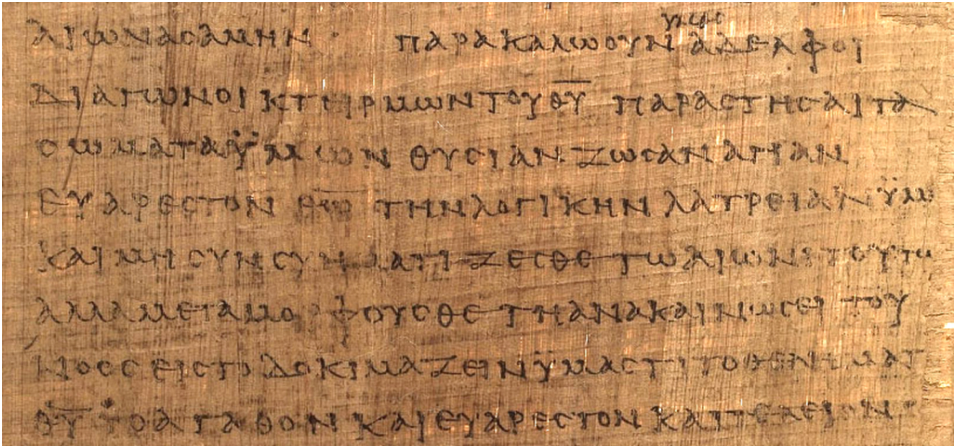 ΑΙΩΝΑϹ ΑΜΗΝ ΠΑΡΑΚΑΛΩ ΟΥΝ ΥΜΑϹ ΑΔΕΛΦΟΙ
ΔΙΑ ΤΩΝ ΟΙΚΤΕΙΡΜΩΝ ΤΟΥ Θ̅Υ̅ ΠΑΡΑϹΤΗϹΑΙ ΤΑ
ϹΩΜΑΤΑ ΫΜΩΝ ΘΥϹΙΑΝ ΖΩϹΑΝ ΑΓΙΑΝ
ΕΥΑΡΕϹΤΟΝ Θ̅Ω̅ ΤΗΝ ΛΟΓΙΚΗΝ ΛΑΤΡΕΙΑΝ ΫΜΩ
ΚΑΙ ΜΗ ϹΥΝϹΥΝΜΑΤΙΖΕϹΘΕ ΤΩ ΑΙΩΝΙ ΤΟΥΤΩ
ΑΛΛΑ ΜΕΤΑΜΟΡΦΟΥϹΘΕ ΤΗ ΑΝΑΚΑΙΝΩϹΕΙ ΤΟΥ
ΝΟΟϹ ΕΙϹ ΤΟ ΔΟΚΙΜΑΖΕΙΝ ΫΜΑϹ ΤΙ ΤΟ ΘΕΛΗΜΑ Τ
Θ̅Υ̅ ΤΟ ΑΓΑΘΟΝ ΚΑΙ ΕΥΑΡΕϹΤΟΝ ΚΑΙ ΤΕΛΕΙΟΝ